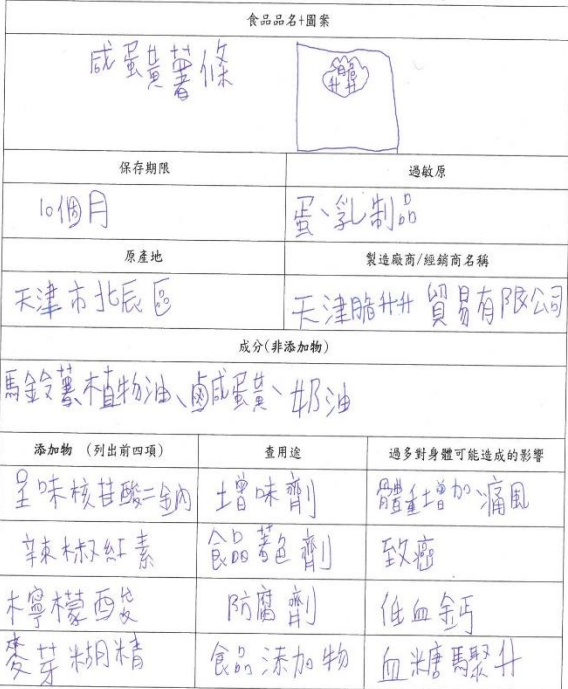 食品品名+圖案
咸蛋黃薯條
保存期限 過敏原
10個月 蛋、乳制品
原產地 製造廠商/經銷商名稱
天津市北辰區 天津脂升升貿易有限公司
成分(非添加物)
馬鈴薯、植物油、鹹蛋黃、奶油
添加物 (列出前四項) 查用途 過多對身體可能造成的影響
呈味核苷酸二鈉 增味劑 體重增加痛風
辣椒紅素 食品著色劑 致癌
檸檬酸 防腐劑 低血鈣
麥芽糊精 食品添加物 血糖驟升